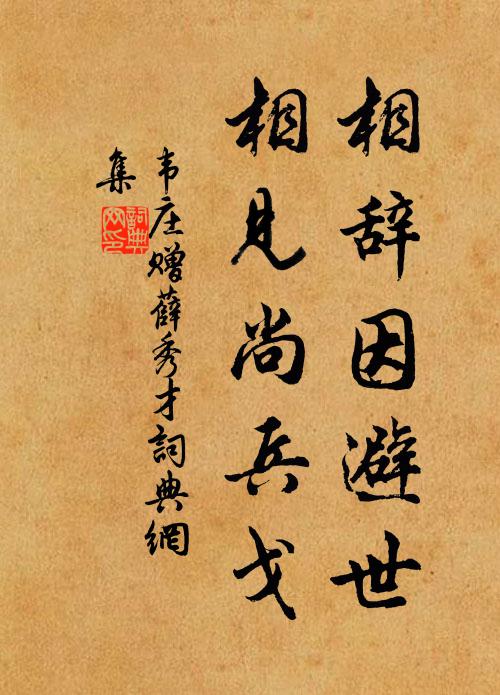 相辞因避世
相见尚兵戈
韦庄赠薛秀才词典網
集
詞典
网印